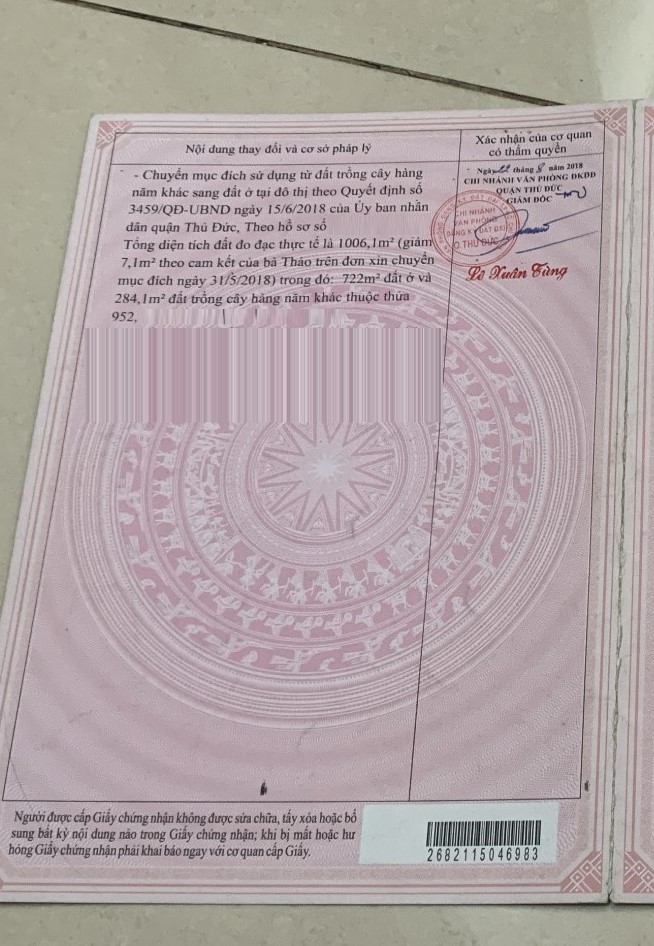 Nội dung thay đổi và cơ sở pháp lý
Xác nhận của cơ quan
có thẩm quyền
- Chuyển mục đích sử dụng từ đất trồng cây hàng
năm khác sang đất ở tại đô thị theo Quyết định số
3459/QĐ-UBND ngày 15/6/2018 của Ủy ban nhân
dân quận Thủ Đức, Theo hồ sơ số
Tổng diện tích đất đo đạc thực tế là 1006,1m² (giảm
7,1m² theo cam kết của bà Thảo trên đơn xin chuyển
mục đích ngày 31/5/2018) trong đó: 722m² đất ở và
284,1m² đất trồng cây hàng năm khác thuộc thửa
952,
Ngày tháng 8 năm 2018
CHI NHÁNH VĂN PHÒNG ĐKĐĐ
QUẬN THỦ ĐỨC
GIÁM ĐỐC
CHI NHÁNH
VĂN PHÒNG
ĐĂNG KÝ ĐẤT ĐAI
Q.THỦ ĐỨC
Lê Xuân Tùng
Người được cấp Giấy chứng nhận không được sửa chữa, tẩy xóa hoặc bổ
sung bất kỳ nội dung nào trong Giấy chứng nhận; khi bị mất hoặc hư
hỏng Giấy chứng nhận phải khai báo ngay với cơ quan cấp Giấy.
2682115046983